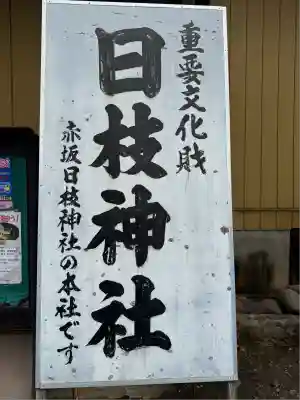 重要文化財
日枝神社
赤坂日枝神社の本社です